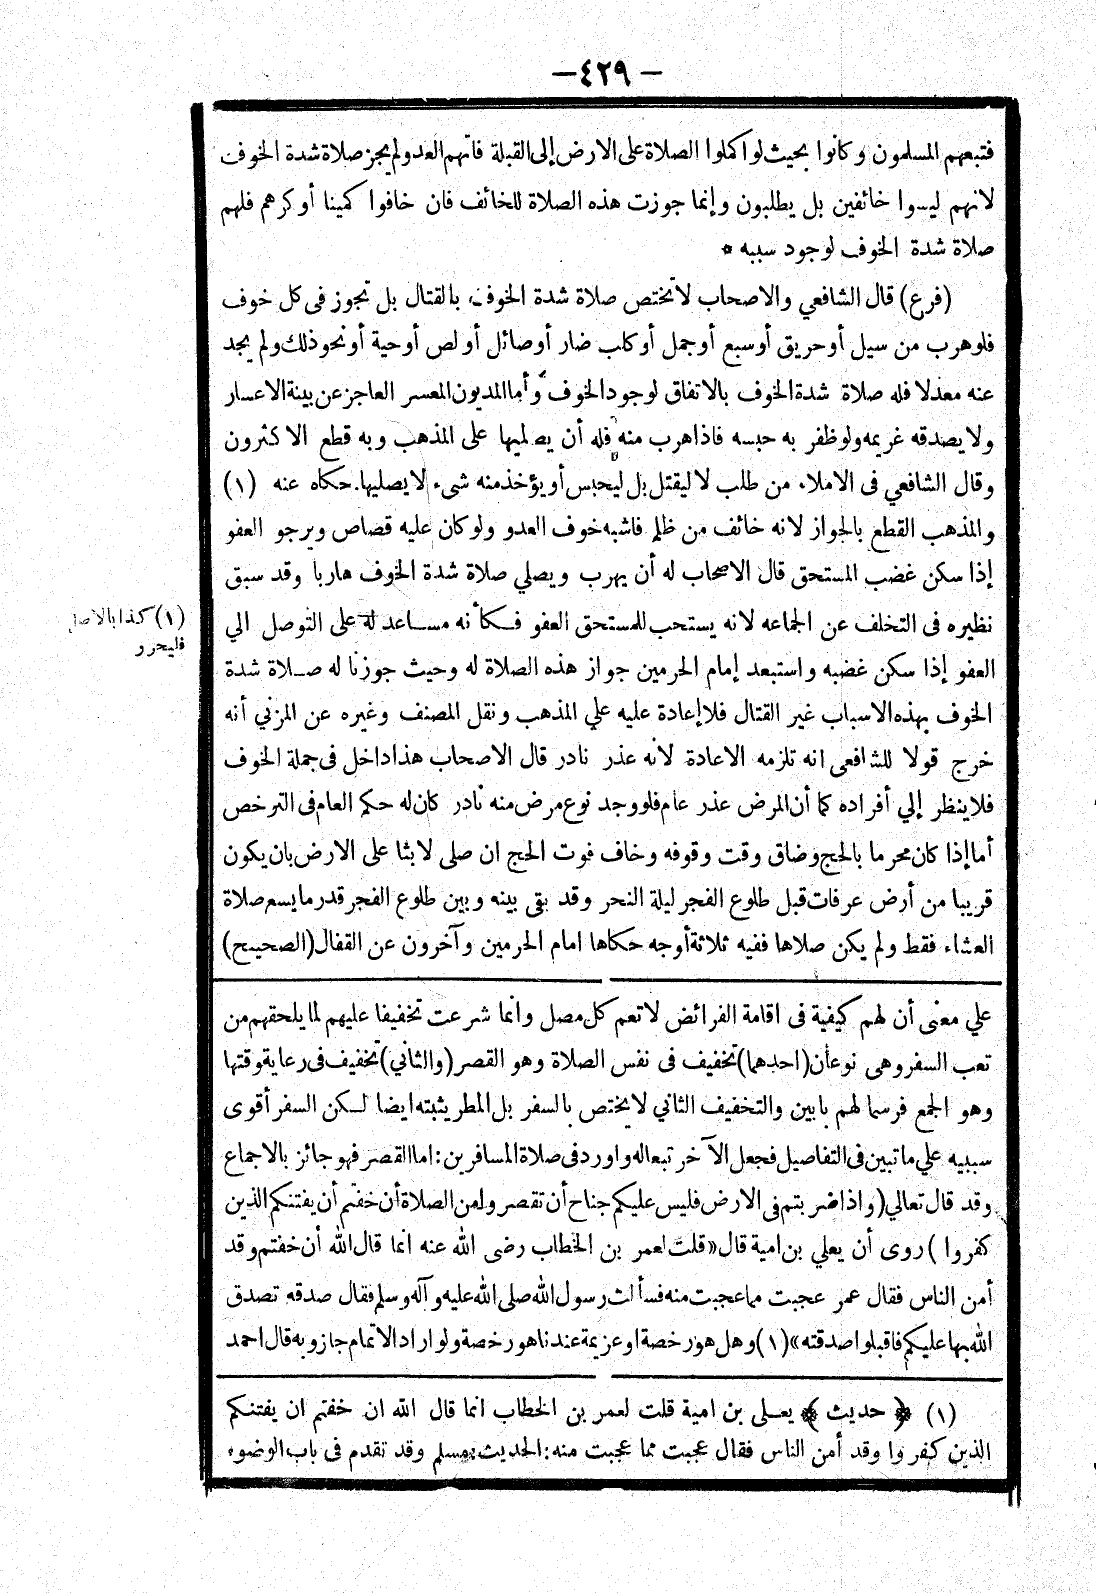 — ٤٢٩ —
فتبعهم المسلمون وكانوا بحيث لو اكملوا الصلاة على الارض إلى القبلة فاتهم العدو لم يجز صلاة شدة الخوف
لانهم ليسوا خائفين بل يطلبون وإنما جوزت هذه الصلاة للخائف فان خافوا كمينا أو كرهم فلهم
صلاة شدة الخوف لوجود سببه *
(فرع) قال الشافعي والاصحاب لا تختص صلاة شدة الخوف بالقتال بل تجوز فى كل خوف
فلو هرب من سيل أو حريق أو سبع أو جمل أو كلب ضار أو صائل أو لص أو حية أو نحو ذلك ولم يجد
عنه معدلا فله صلاة شدة الخوف بالاتفاق لوجود الخوف وأما المديون المعسر العاجز عن بينة الاعسار
ولا يصدقه غريمه ولو ظفر به حبسه فاذا هرب منه فله أن يصليها على المذهب وبه قطع الاكثرون
وقال الشافعي فى الاملاء من طلب لا ليقتل بل ليحبس أو يؤخذ منه شىء لا يصليها. حكاه عنه (١)
والمذهب القطع بالجواز لانه خائف من ظلم فاشبه خوف العدو ولو كان عليه قصاص ويرجو العفو
إذا سكن غضب المستحق قال الاصحاب له أن يهرب ويصلي صلاة شدة الخوف هاربا وقد سبق
نظيره فى التخلف عن الجماعه لانه يستحب للمستحق العفو فكأنه مساعد له على التوصل الي
العفو إذا سكن غضبه واستبعد إمام الحرمين جواز هذه الصلاة له وحيث جوزنا له صلاة شدة
الخوف بهذه الاسباب غير القتال فلا إعادة عليه علي المذهب ونقل المصنف وغيره عن المزني أنه
خرج قولا للشافعى انه تلزمه الاعادة لانه عذر نادر قال الاصحاب هذا داخل فى جملة الخوف
فلا ينظر إلي أفراده كما أن المرض عذر عام فلو وجد نوع مرض منه نادر كان له حكم العام فى الترخص
أما إذا كان محرما بالحج وضاق وقت وقوفه وخاف فوت الحج ان صلى لابثا على الارض بان يكون
قريبا من أرض عرفات قبل طلوع الفجر ليلة النحر وقد بقى بينه وبين طلوع الفجر قدر ما يسع صلاة
العشاء فقط ولم يكن صلاها ففيه ثلاثة أوجه حكاها امام الحرمين وآخرون عن القفال (الصحيح)
(١) كذا بالاصل
فليحرر
علي معنى أن لهم كيفية فى اقامة الفرائض لا تعم كل مصل وانما شرعت تخفيفا عليهم لما يلحقهم من
تعب السفر وهى نوعان (احدهما) تخفيف فى نفس الصلاة وهو القصر (والثاني) تخفيف فى رعاية وقتها
وهو الجمع فرسما لهم بابين والتخفيف الثاني لا يختص بالسفر بل المطر يثبته ايضا لكن السفر أقوى
سببيه علي ما تبين فى التفاصيل فجعل الآخر تبعا له واورد فى صلاة المسافرين: اما القصر فهو جائز بالاجماع
وقد قال تعالي (واذا ضربتم فى الارض فليس عليكم جناح أن تقصروا من الصلاة أن خفتم أن يفتنكم الذين
كفروا) روى أن يعلي بن امية قال «قلت لعمر بن الخطاب رضى الله عنه انما قال الله أن خفتم وقد
أمن الناس فقال عمر عجبت مما عجبت منه فسألت رسول الله صلى الله عليه وآله وسلم فقال صدقه تصدق
الله بها عليكم فاقبلوا صدقته» (١) وهل هو رخصة او عزيمة عندنا هو رخصة ولو اراد الاتمام جاز وبه قال احمد
(١) ﴿حديث﴾ يعلى بن امية قلت لعمر بن الخطاب انما قال الله ان خفتم ان يفتنكم
الذين كفروا وقد أمن الناس فقال عجبت مما عجبت منه: الحديث: مسلم وقد تقدم فى باب الوضوء